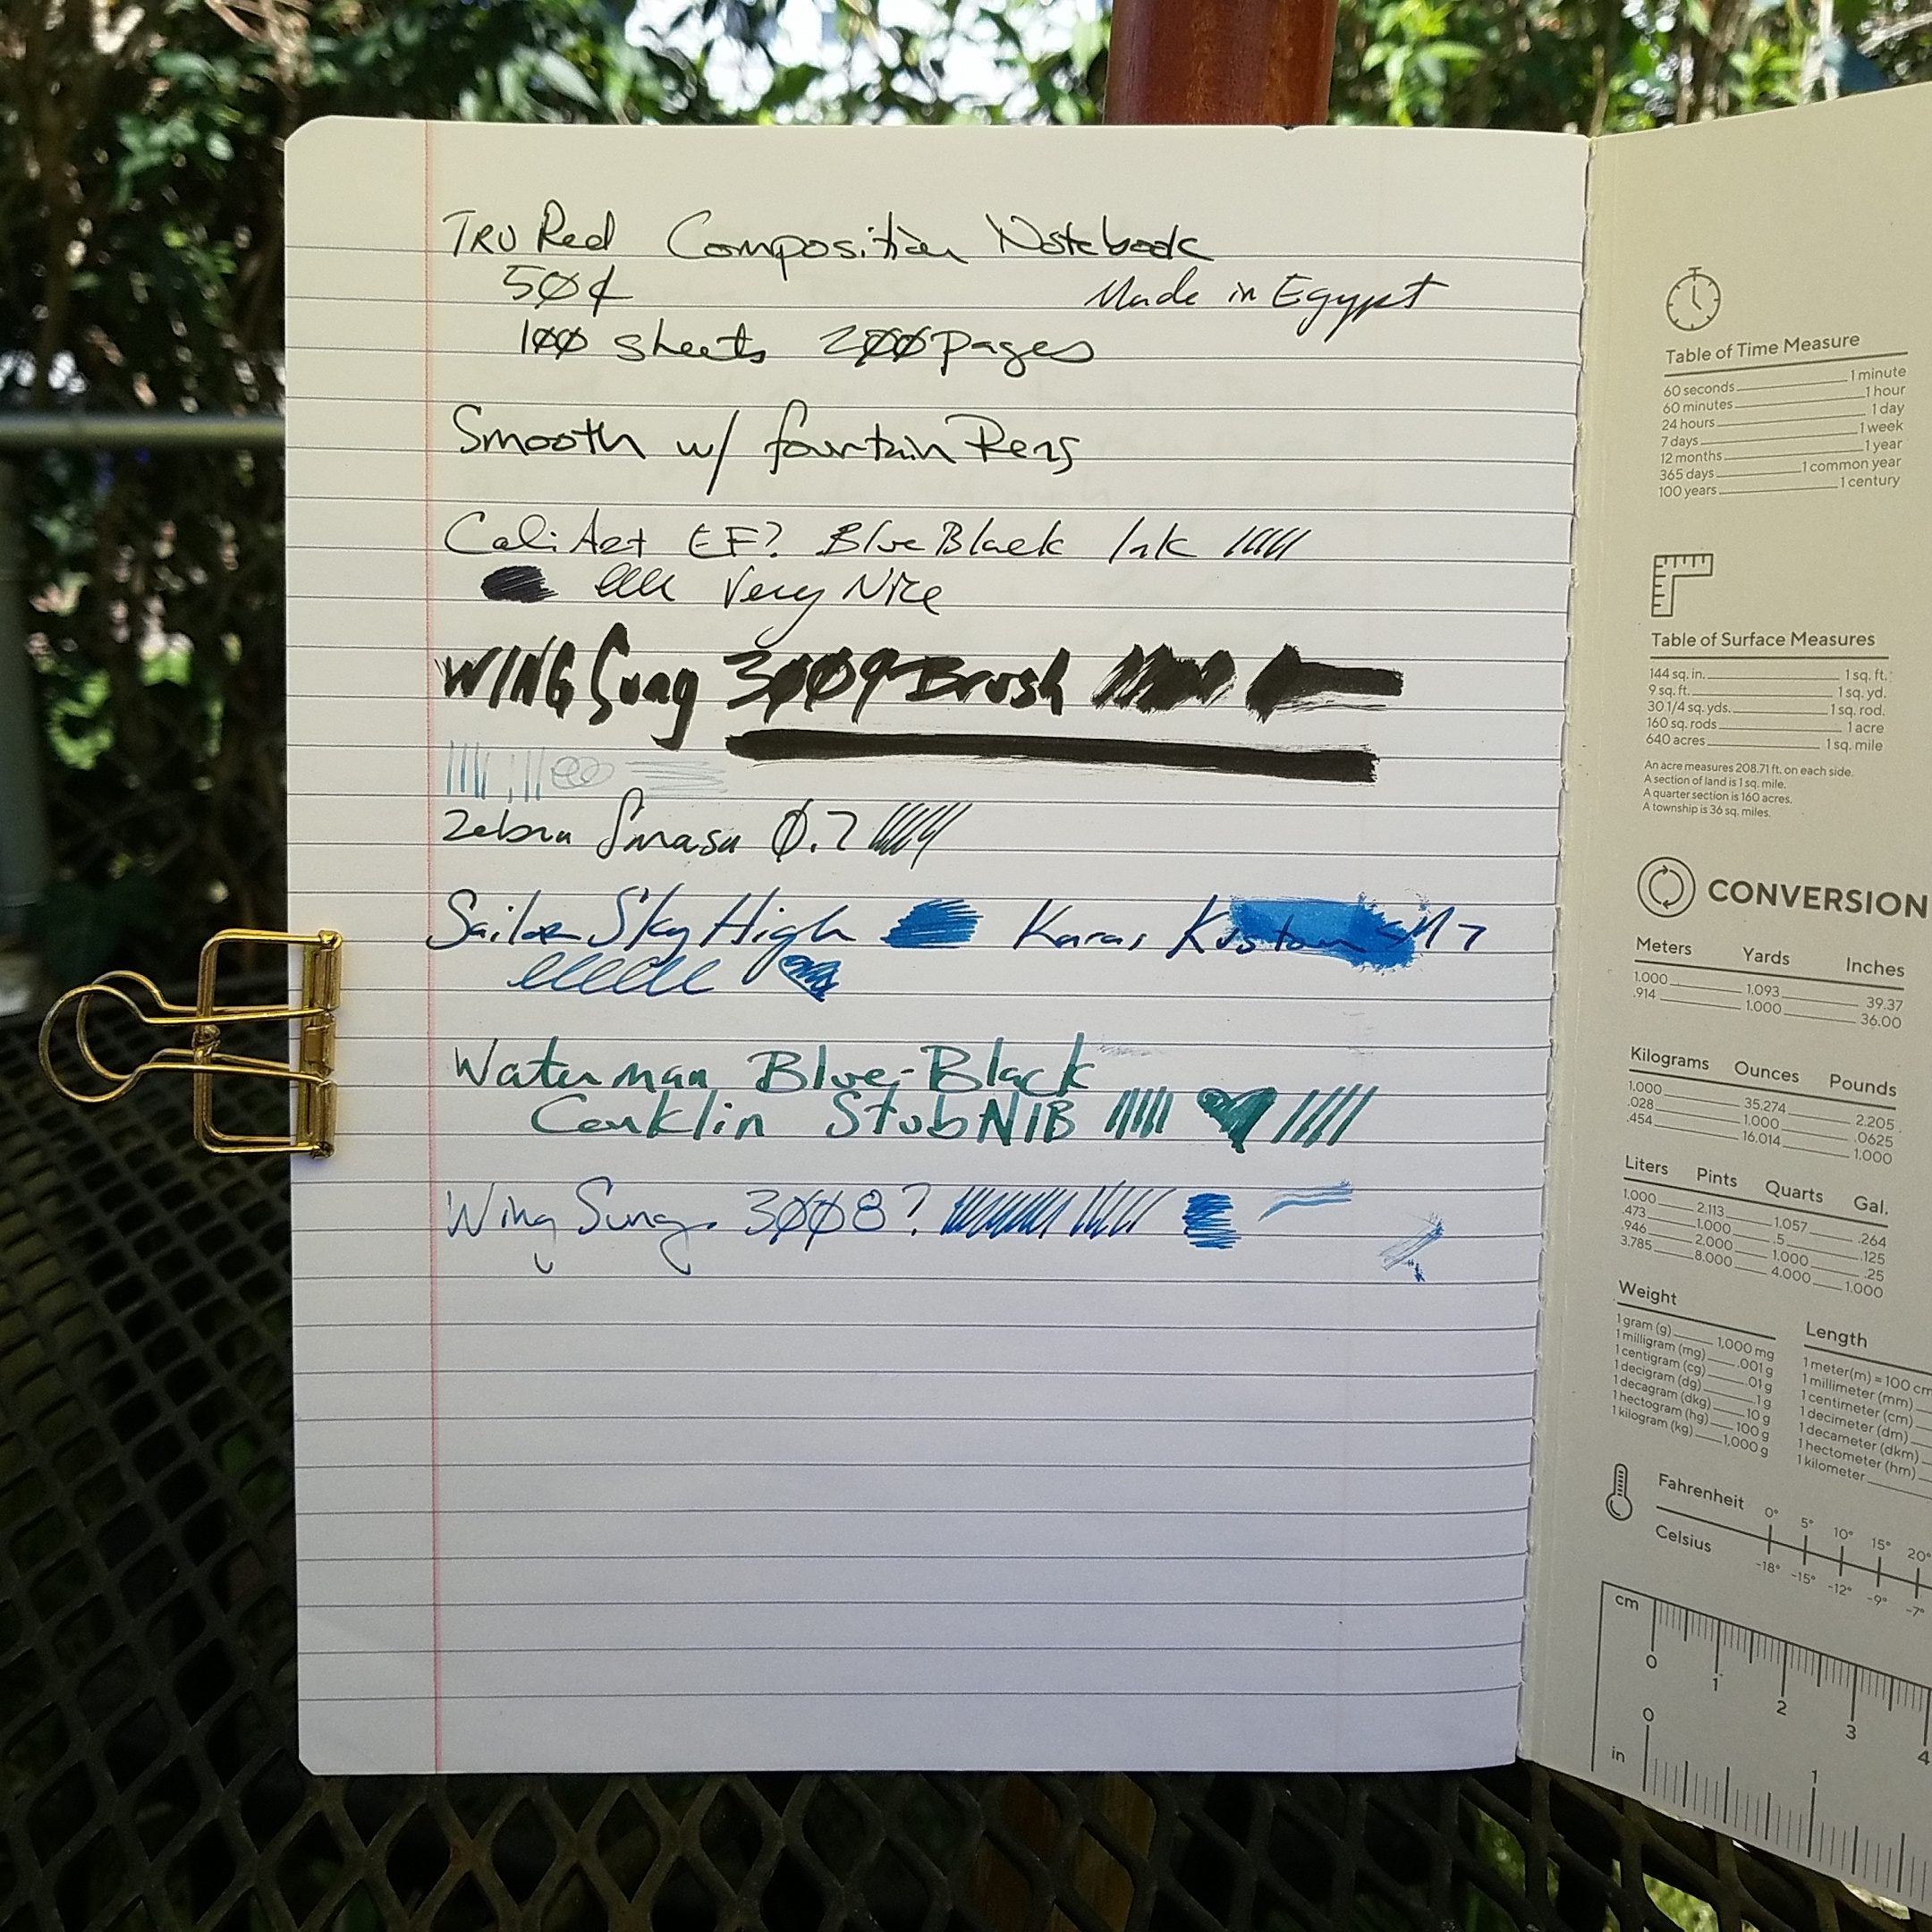 TRU Red Composition Notebook
50¢ Made in Egypt
100 sheets 200 pages
Smooth w/ fountain Pens
CaliArt EF? Blue Black Ink
Very Nice
WING Sung 3009 Brush
Zebra Smasu 0.7
Sailor Sky High Karas Kustom
Waterman Blue-Black
Conklin Stub NIB
Wing Sung 3008?
Table of Time Measure
60 seconds 1 minute
60 minutes 1 hour
24 hours 1 day
7 days 1 week
12 months 1 year
365 days 1 common year
100 years 1 century
Table of Surface Measures
144 sq. in. 1 sq. ft.
9 sq. ft. 1 sq. yd.
30 1/4 sq. yds. 1 sq. rod.
160 sq. rods 1 acre
640 acres 1 sq. mile
An acre measures 208.71 ft. on each side.
A section of land is 1 sq. mile.
A quarter section is 160 acres.
A township is 36 sq. miles.
CONVERSION
Meters Yards Inches
1.000 1.093 39.37
.914 1.000 36.00
Kilograms Ounces Pounds
1.000 35.274 2.205
.028 1.000 .0625
.454 16.014 1.000
Liters Pints Quarts Gal.
1.000 2.113 1.057 .264
.473 1.000 .5 .125
.946 2.000 1.000 .25
3.785 8.000 4.000 1.000
Weight
1 gram (g) 1,000 mg
1 milligram (mg) .001 g
1 centigram (cg) .01 g
1 decigram (dg) .1 g
1 decagram (dkg) 10 g
1 hectogram (hg) 100 g
1 kilogram (kg) 1,000 g
Length
1 meter(m) = 100 cm
1 millimeter (mm)
1 centimeter (cm)
1 decimeter (dm)
1 decameter (dkm)
1 hectometer (hm)
1 kilometer
Fahrenheit 0° 5° 10° 15° 20°
Celsius -18° -15° -12° -9° -7°
cm
0 1 2 3 4
0 1
in